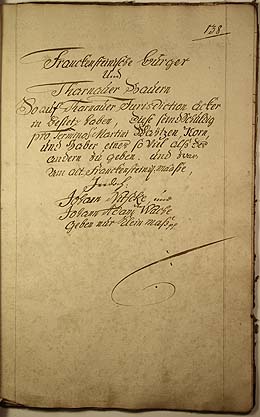 138
Franckensteinische Bürger
Und
Tharnauer Bauern
So auf Tharnauer Jurisdiction äcker
in besitz haben, seind schuldig
pro Termino Martini Waitzen Korn,
und haber einer so viel alß der
andern zu geben, und zwar
alt Franckensteinig. maaße,
Jedoch
Johann und
Johann Adam
geben nur klein maß